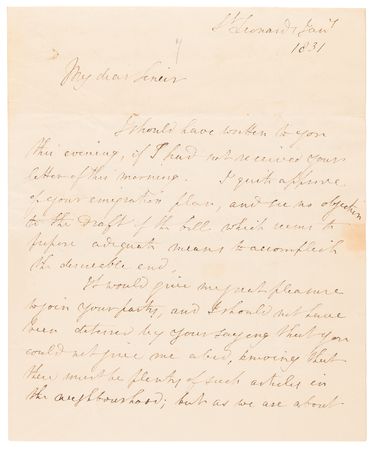 St Leonards Jany
1831
My dear Senior
I should have written to you
this evening, if I had not received your
letter of this morning. I quite approve
of your emigration plan, and see no objection
to the Draft of the bill which seems to
propose adequate means to accomplish
the desireable end.
It would give me great pleasure
to join your party, and I should not have
been deterred by your saying that you
could not give me a bed, knowing that
there must be plenty of such articles in
the neighbourhood; but as we are about